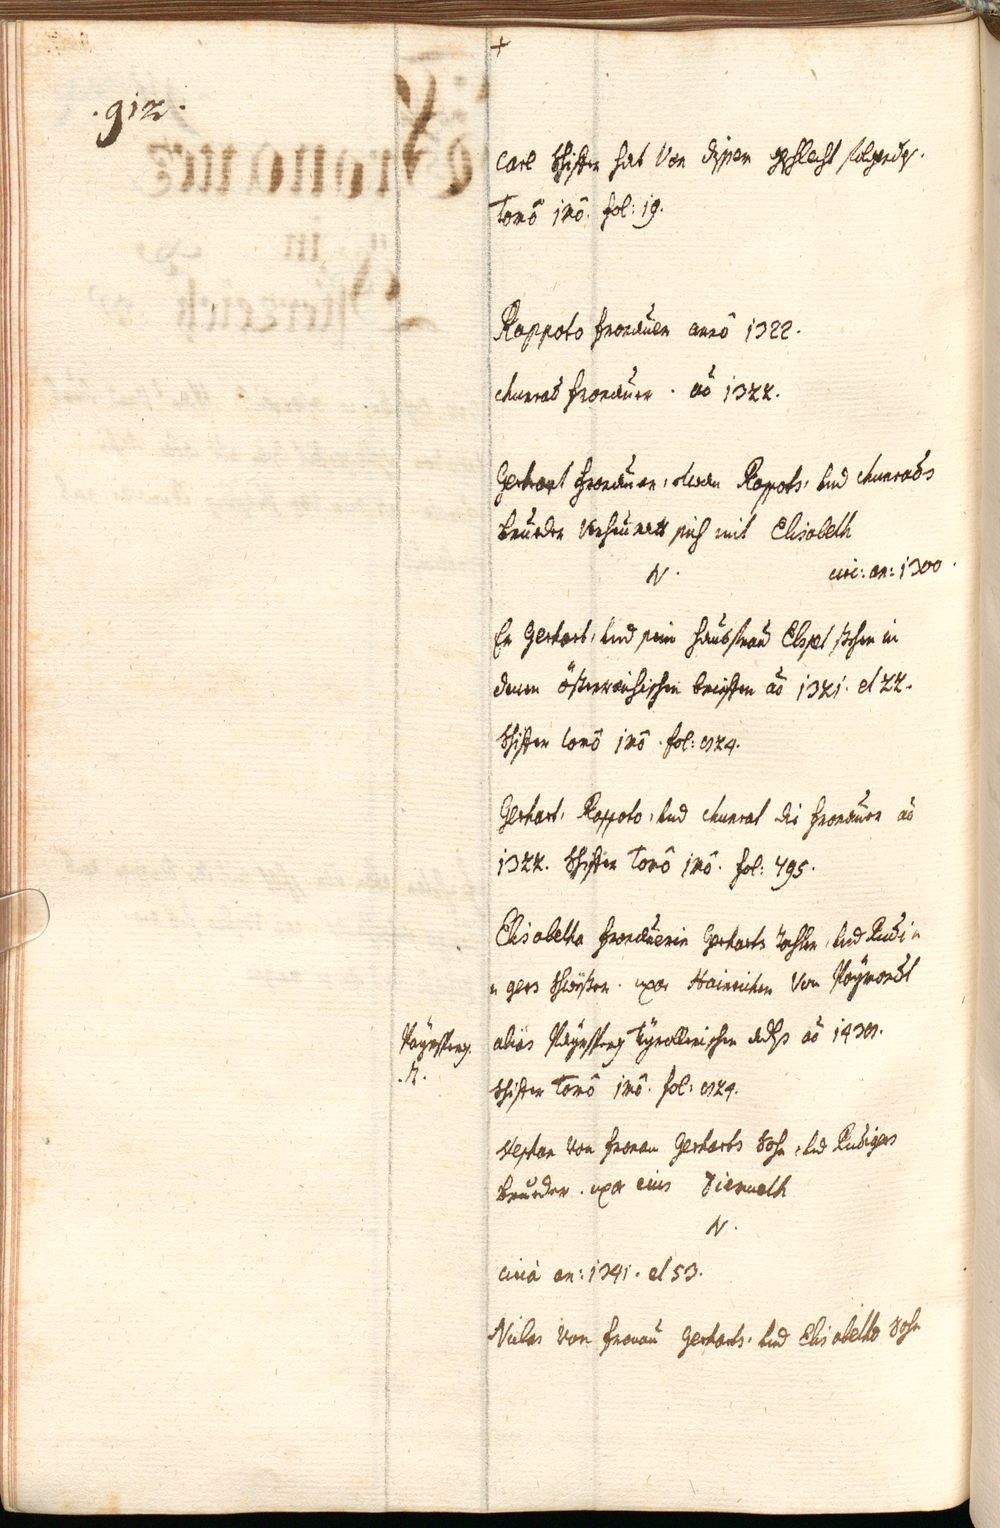 +
.912.
Carl Schifer hat Von disem geschlecht folgendes.
Tomô imô. fol: 19.
Rappoto fronauer annô 1322.
Chunrad fronauer. aô 1322.
Gerhart fronauer, dises Rapots, und Chunrads
brueder Verheurath sich mit Elisabeth
N. circ: an: 1300.
Er Gerhart, und sein hausfrau Elspet stehen in
denen österreichischen brieffen aô 1321. et 22.
Schifer tomô imô. fol: 524.
Gerhart, Rappoto, und Chunrat die fronauer aô
1322. Schifer Tomô imô. fol: 495.
Elisabetha fronauerin Gerharts tochter, und Rudi=
=gers schwester. uxor Hainrichen Von
alias Tÿrollerischen adls aô
.N.
Schifer Tomô imô. fol: 524.
Von fronau Gerharts Sohn, und Rudigers
brueder. uxor eius Diemueth
N.
circà an: 1341. et 53.
Niclas Von fronau Gerharts, und Elisabetha Sohn